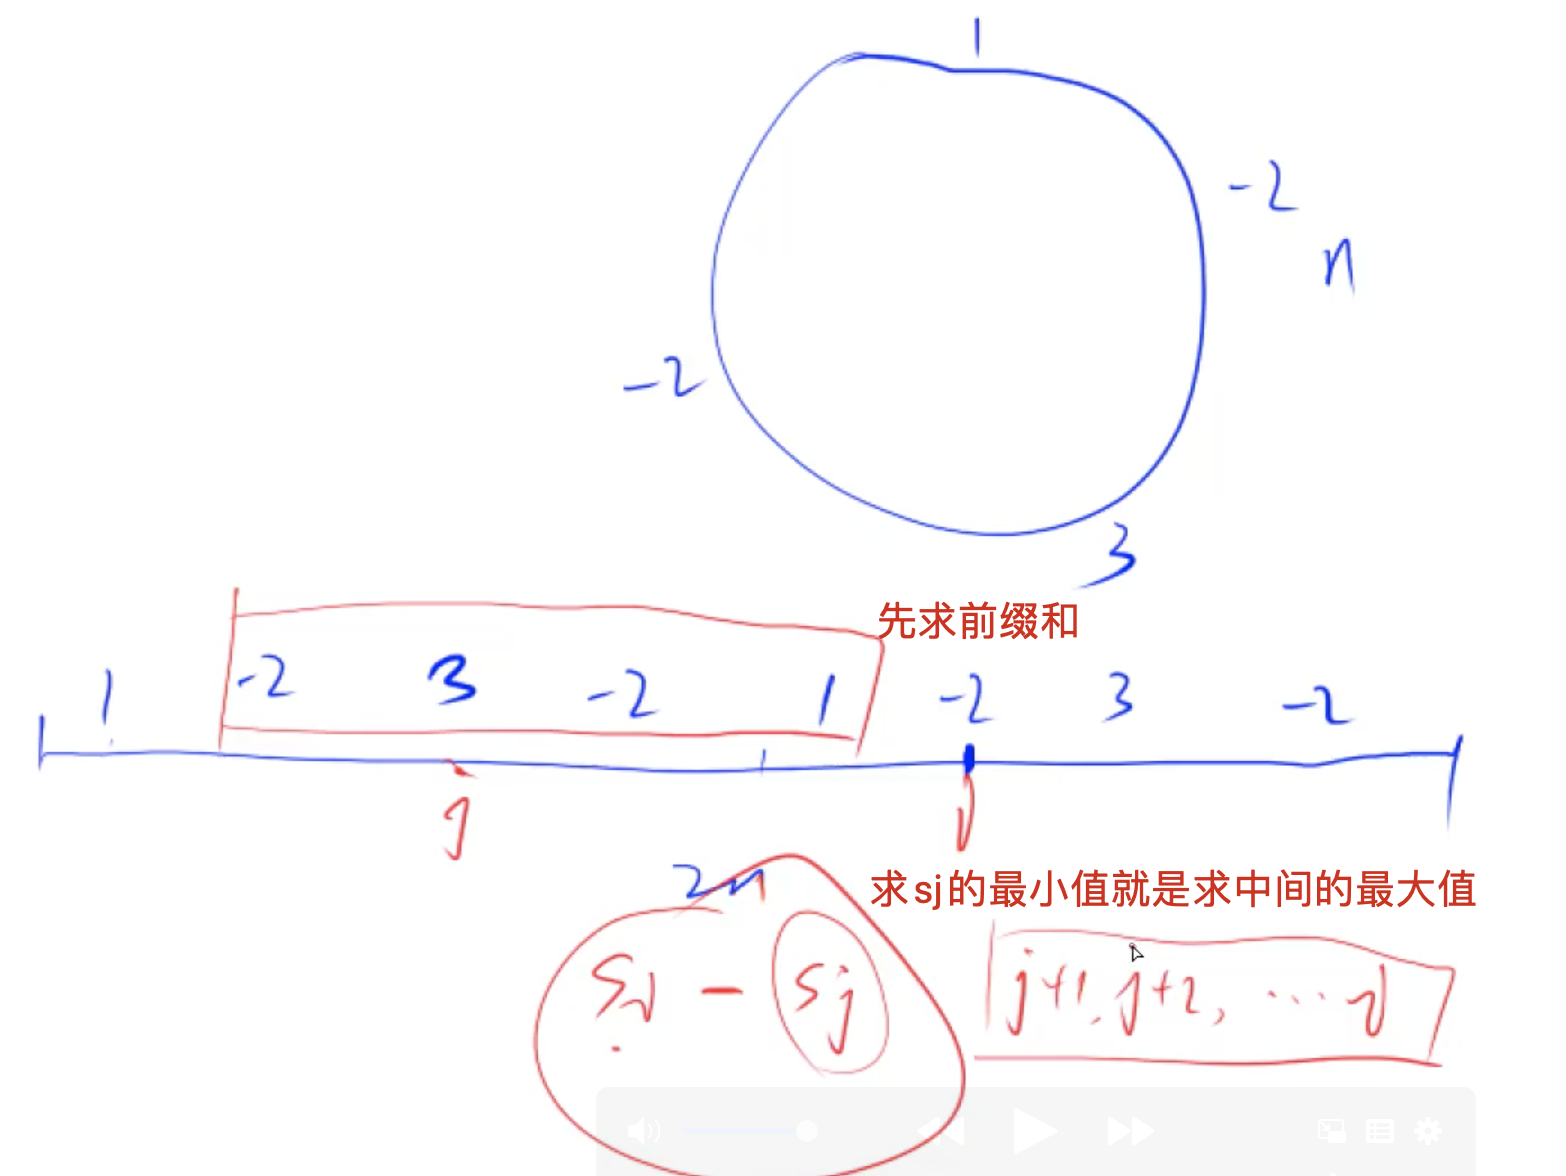 1
-2
n
-2
3
先求前缀和
1 -2 3 -2 1 -2 3 -2
j i
2n
求sj的最小值就是求中间的最大值
si - sj
j+1, j+2, ... i